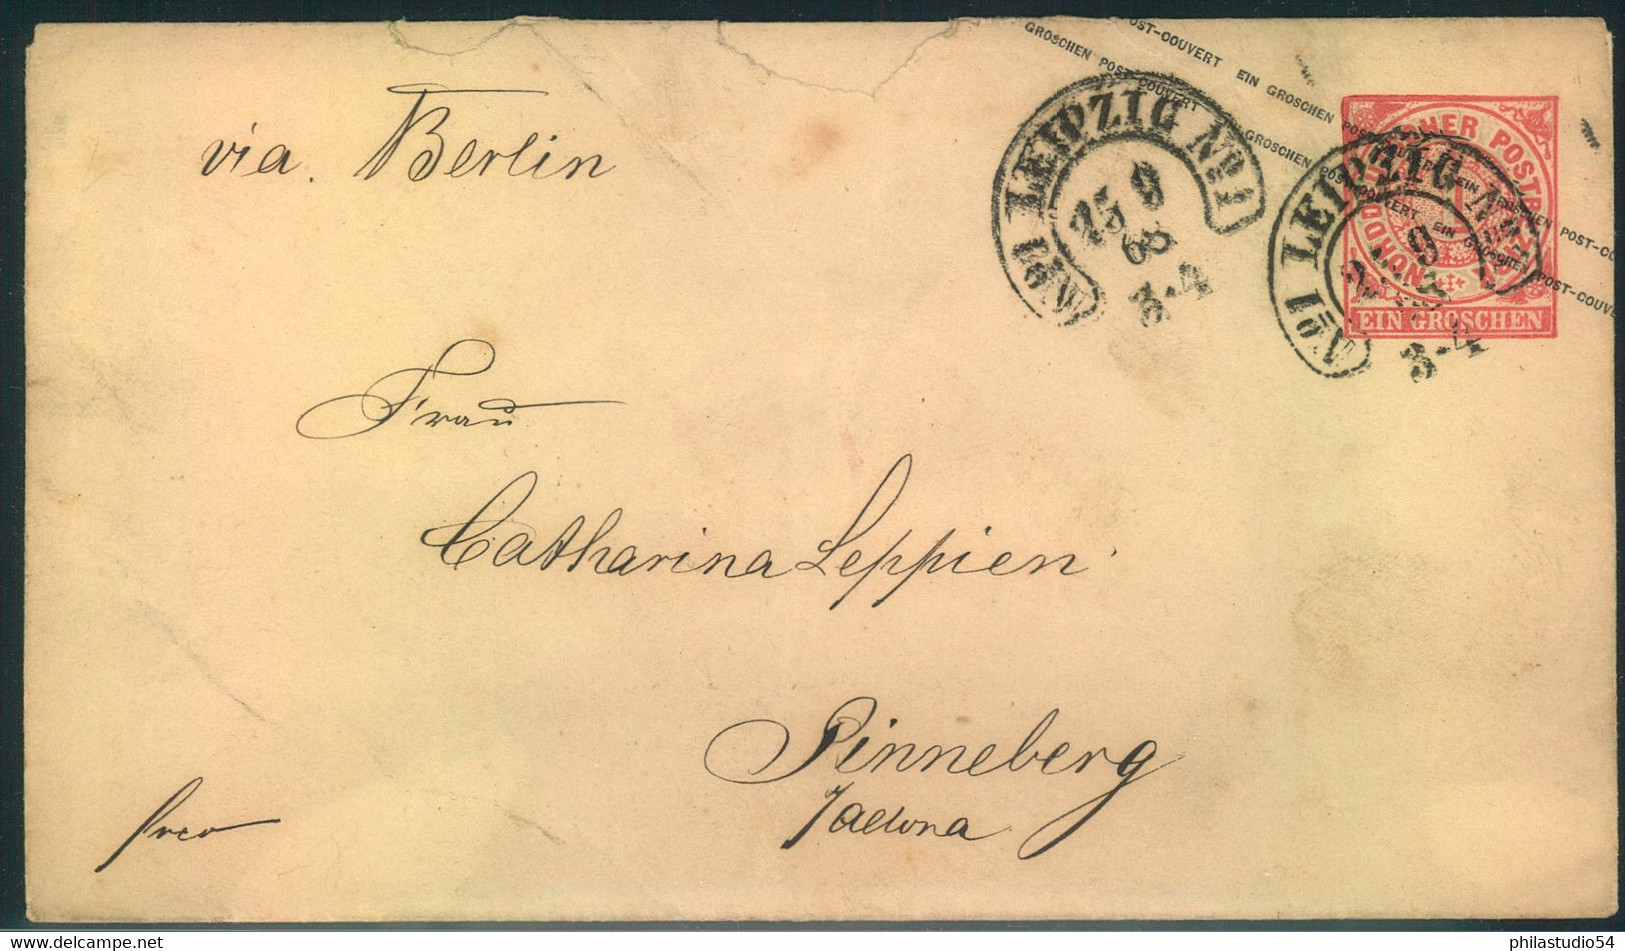 POST-COUVERT EIN GROSCHEN POST-COUVERT EIN GROSCHEN POST-COUVERT
GROSCHEN POST-COUVERT EIN GROSCHEN POST-COUVERT EIN GROSCHEN POST-COUVERT
via. Berlin
LEIPZIG No 1
25 9
68
3-4
No 1
LEIPZIG
9
3-4
No 1
NORDDEUTSCHER POSTBEZIRK
1
EIN GROSCHEN
Frau
Catharina Leppien
Pinneberg
frco
philastudio54